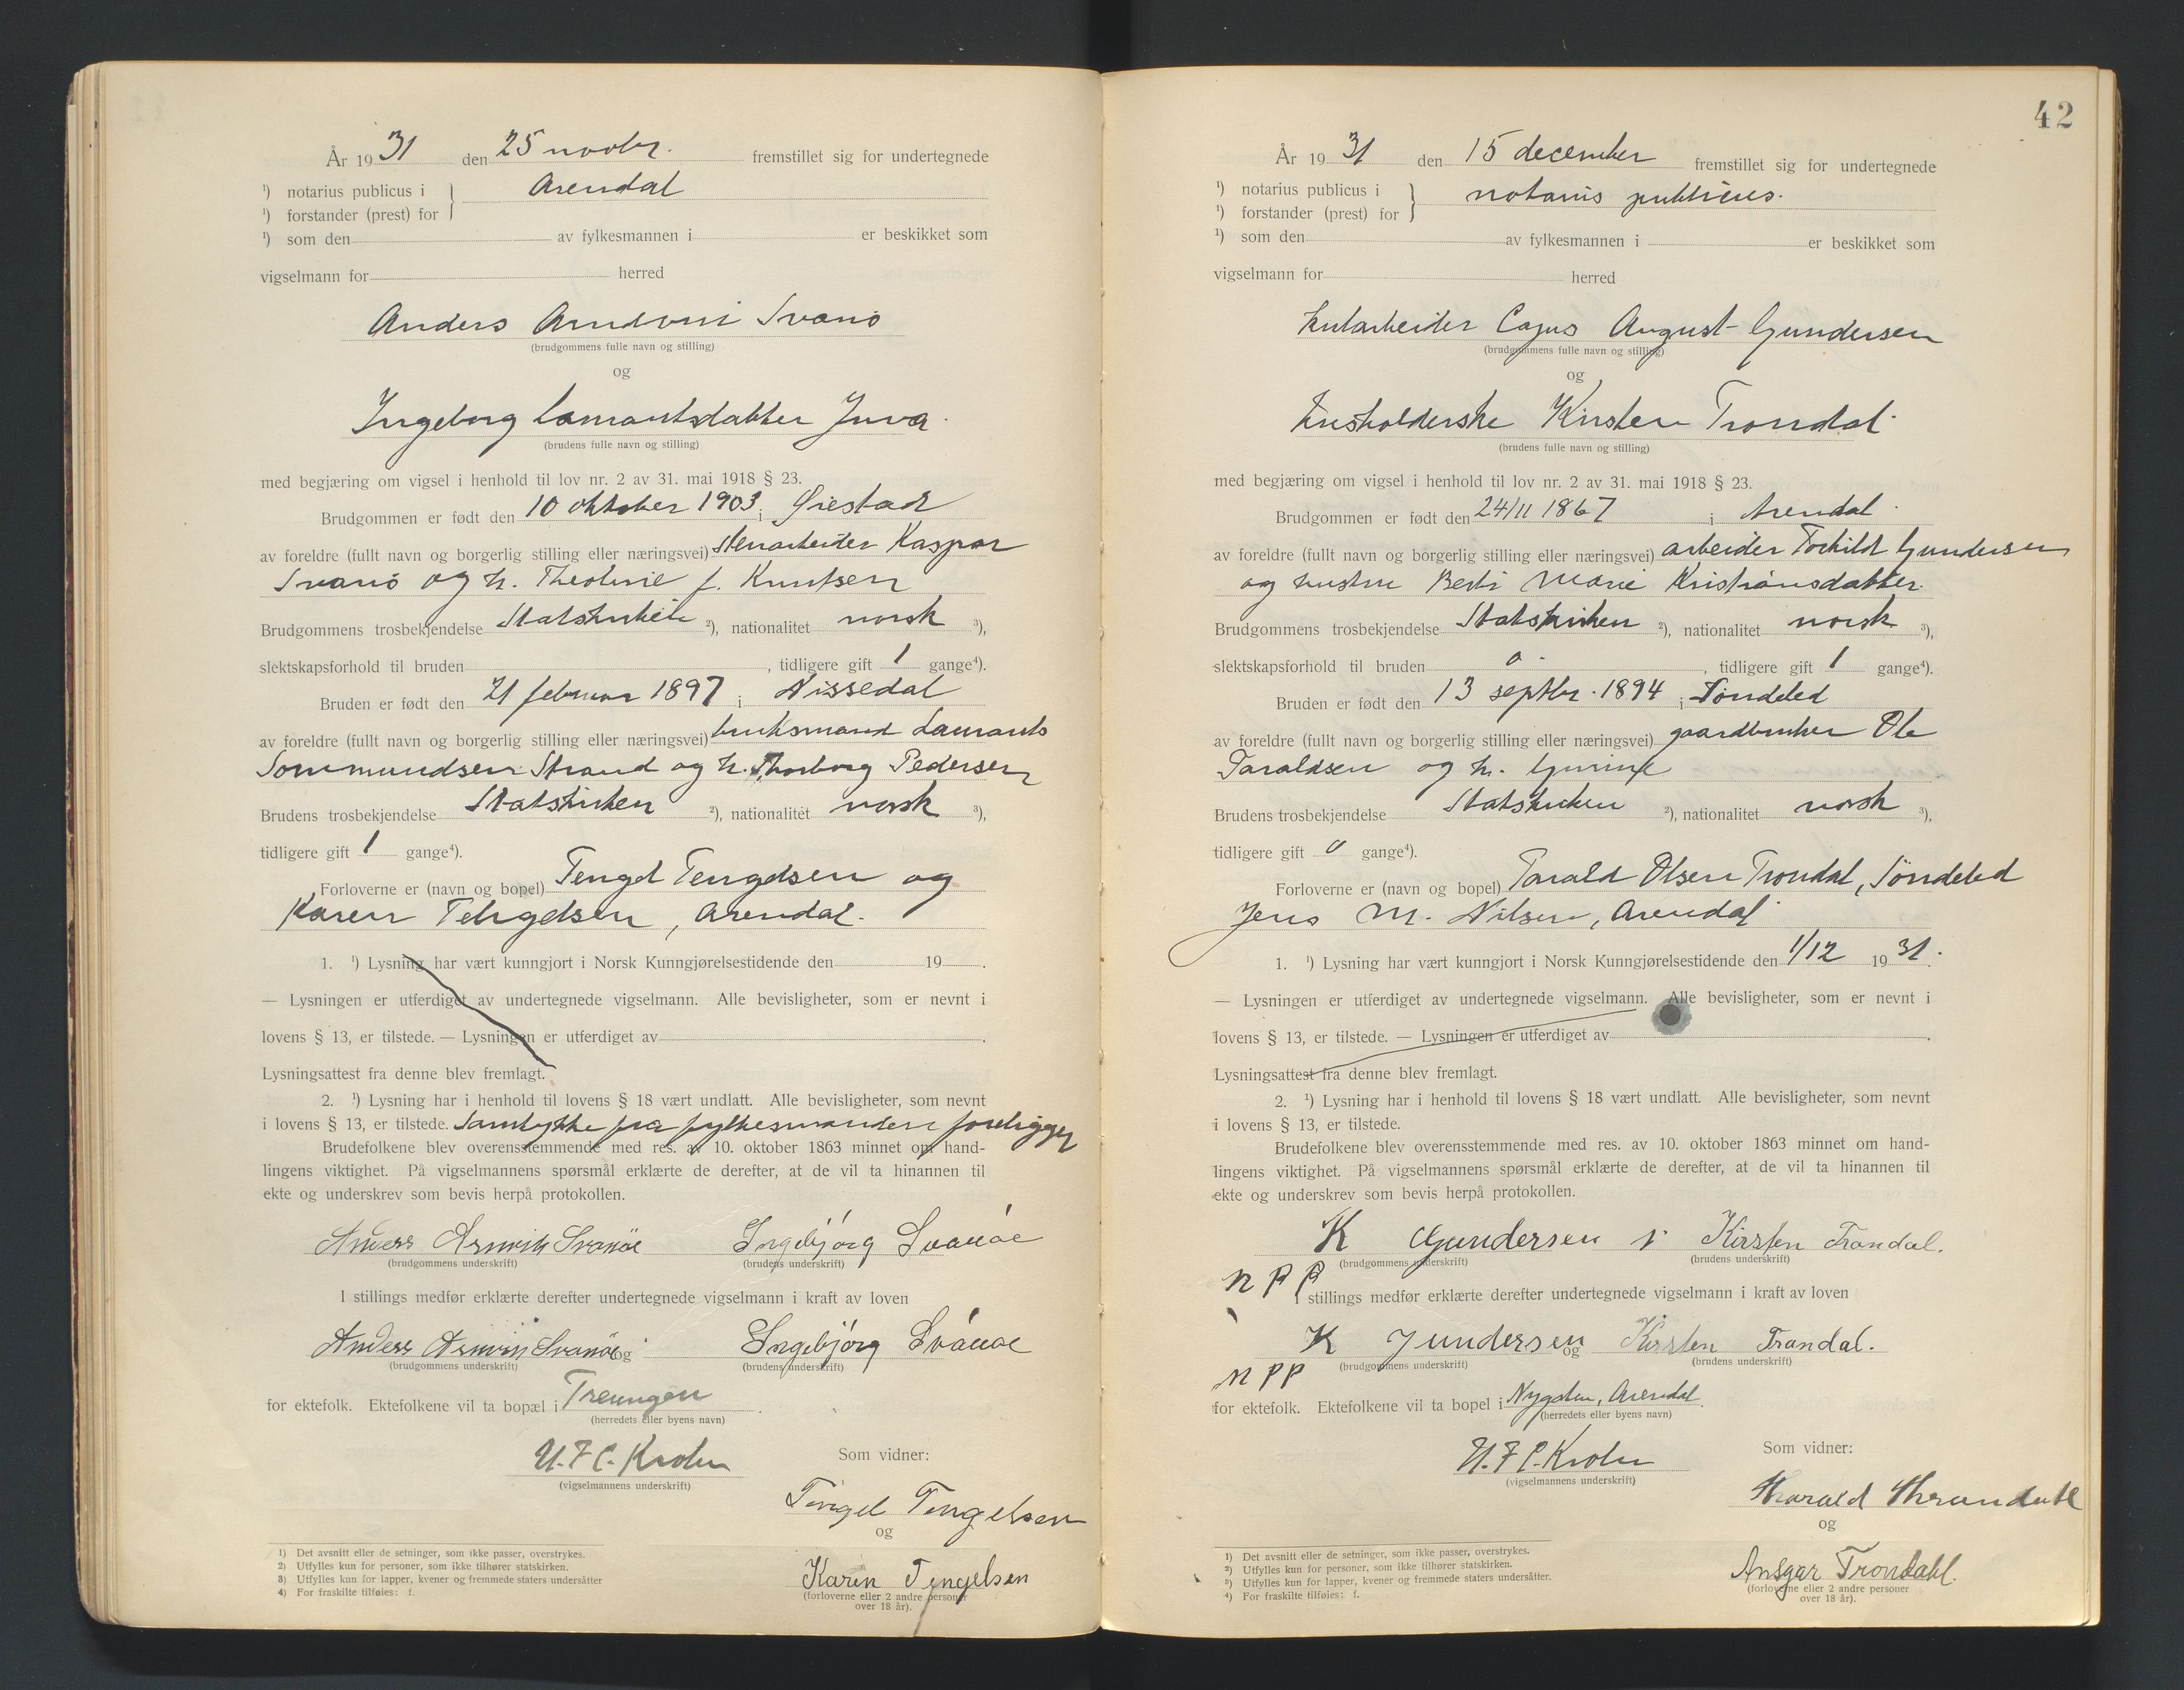 År 1931 den 25 novbr. fremstillet sig for undertegnede
¹) notarius publicus i Arendal
¹) forstander (prest) for
¹) som den av fylkesmannen i er beskikket som
vigselmann for herred
Anders Svanö
(brudgommens fulle navn og stilling)
og
Ingeborg datter Juva.
(brudens fulle navn og stilling)
med begjæring om vigsel i henhold til lov nr. 2 av 31. mai 1918 § 23.
Brudgommen er født den 10 oktober 1903 i Øiestad
av foreldre (fullt navn og borgerlig stilling eller næringsvei) stenarbeider Kaspar
Svanö og h. f. Knutsen
Brudgommens trosbekjendelse Statskirken ²), nationalitet norsk ³),
slektskapsforhold til bruden , tidligere gift 1 gange⁴).
Bruden er født den 21 februar 1897 i Nissedal
av foreldre (fullt navn og borgerlig stilling eller næringsvei) bruksmand
Strand og h. Thorborg Pedersen
Brudens trosbekjendelse Statskirken ²), nationalitet norsk ³),
tidligere gift 1 gange⁴).
Forloverne er (navn og bopel) og
Karen , Arendal.
1. ¹) Lysning har vært kunngjort i Norsk Kunngjørelsestidende den 19 .
— Lysningen er utferdiget av undertegnede vigselmann. Alle bevisligheter, som er nevnt i
lovens § 13, er tilstede. — Lysningen er utferdiget av .
Lysningsattest fra denne blev fremlagt.
2. ¹) Lysning har i henhold til lovens § 18 vært undlatt. Alle bevisligheter, som nevnt
i lovens § 13, er tilstede. Samtykke fra fylkesmanden foreligger
Brudefolkene blev overensstemmende med res. av 10. oktober 1863 minnet om hand-
lingens viktighet. På vigselmannens spørsmål erklærte de derefter, at de vil ta hinannen til
ekte og underskrev som bevis herpå protokollen.
Anders Svanöe Ingebjörg Svanöe
(brudgommens underskrift) (brudens underskrift)
I stillings medfør erklærte derefter undertegnede vigselmann i kraft av loven
Anders Svanöe og Ingebjörg Svanöe
(brudgommens underskrift) (brudens underskrift)
for ektefolk. Ektefolkene vil ta bopæl i Treungen .
(herredets eller byens navn)
U.F.C. Krohn Som vidner:
(vigselmannens underskrift)
Tengelsen
og
Karen Tengelsen
(forloverne eller 2 andre personer
over 18 år).
1) Det avsnitt eller de setninger, som ikke passer, overstrykes.
2) Utfylles kun for personer, som ikke tilhører statskirken.
3) Utfylles kun for lapper, kvener og fremmede staters undersåtter
4) For fraskilte tilføies: f.
42
År 1931 den 15 december fremstillet sig for undertegnede
¹) notarius publicus i notarius publicus.
¹) forstander (prest) for
¹) som den av fylkesmannen i er beskikket som
vigselmann for herred
August Gundersen
(brudgommens fulle navn og stilling)
og
husholderske Kirsten Trondal
(brudens fulle navn og stilling)
med begjæring om vigsel i henhold til lov nr. 2 av 31. mai 1918 § 23.
Brudgommen er født den 24/11 1867 i Arendal.
av foreldre (fullt navn og borgerlig stilling eller næringsvei) arbeider Gundersen
og hustru Marie Kristiansdatter.
Brudgommens trosbekjendelse Statskirken ²), nationalitet norsk ³),
slektskapsforhold til bruden 0 , tidligere gift 1 gange⁴).
Bruden er født den 13 septbr. 1894 i Søndeled
av foreldre (fullt navn og borgerlig stilling eller næringsvei) gaardbruker Ole
Taraldsen og h.
Brudens trosbekjendelse Statskirken ²), nationalitet norsk ³),
tidligere gift 0 gange⁴).
Forloverne er (navn og bopel) Tarald Olsen Trondal, Söndeled
Jens M. Nilsen, Arendal
1. ¹) Lysning har vært kunngjort i Norsk Kunngjørelsestidende den 1/12 1931.
— Lysningen er utferdiget av undertegnede vigselmann. Alle bevisligheter, som er nevnt i
lovens § 13, er tilstede. — Lysningen er utferdiget av .
Lysningsattest fra denne blev fremlagt.
2. ¹) Lysning har i henhold til lovens § 18 vært undlatt. Alle bevisligheter, som nevnt
i lovens § 13, er tilstede.
Brudefolkene blev overensstemmende med res. av 10. oktober 1863 minnet om hand-
lingens viktighet. På vigselmannens spørsmål erklærte de derefter, at de vil ta hinannen til
ekte og underskrev som bevis herpå protokollen.
K Gundersen Kirsten Trondal.
(brudgommens underskrift) (brudens underskrift)
m p p
I stillings medfør erklærte derefter undertegnede vigselmann i kraft av loven
K Gundersen og Kirsten Trondal.
(brudgommens underskrift) (brudens underskrift)
m p p
for ektefolk. Ektefolkene vil ta bopel i Arendal.
(herredets eller byens navn)
U.F.C. Krohn Som vidner:
(vigselmannens underskrift)
Tharald Throndahl
og
Ansgar Trondahl.
(forloverne eller 2 andre personer
over 18 år).
1) Det avsnitt eller de setninger, som ikke passer, overstrykes.
2) Utfylles kun for personer, som ikke tilhører statskirken.
3) Utfylles kun for lapper, kvener og fremmede staters undersåtter.
4) For fraskilte tilføies: f.